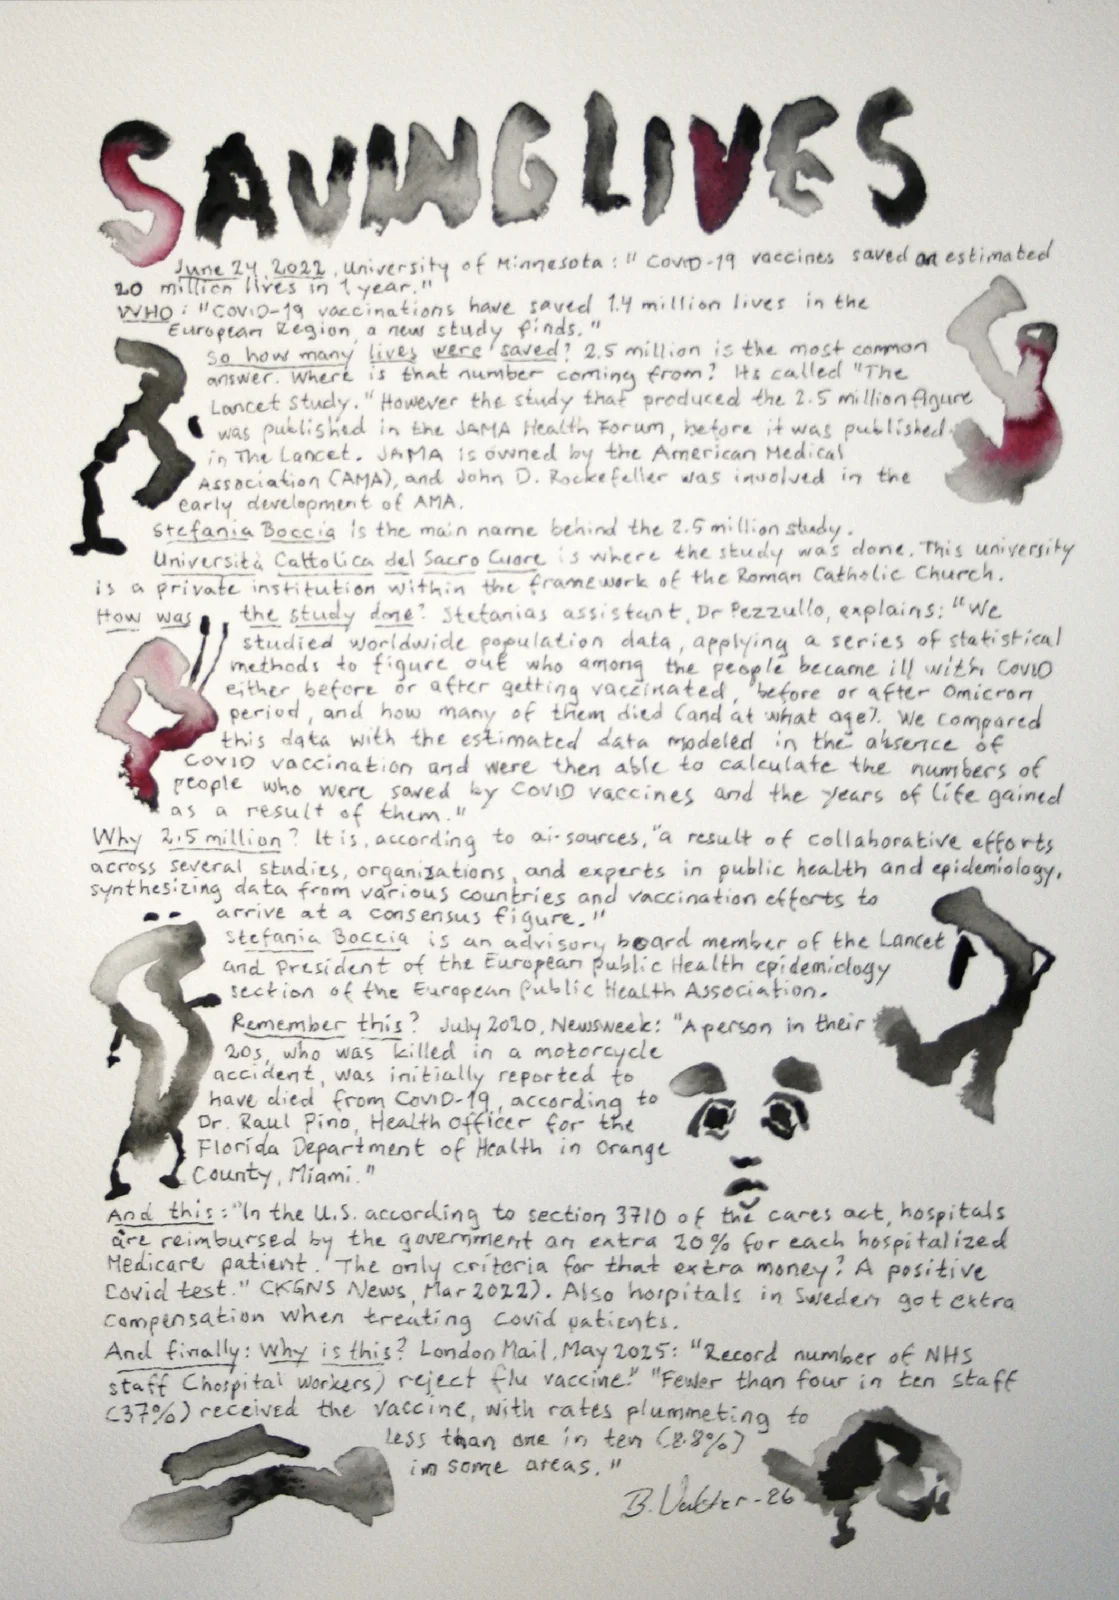 SAVING LIVES
June 24, 2022, University of Minnesota: "Covid-19 vaccines saved an estimated
20 million lives in 1 year."
WHO: "Covid-19 vaccinations have saved 1.4 million lives in the
European Region, a new study finds."
So how many lives were saved? 2.5 million is the most common
answer. Where is that number coming from? Its called "The
Lancet Study." However the study that produced the 2.5 million figure
was published in the JAMA Health Forum, before it was published
in The Lancet. JAMA is owned by the American Medical
Association (AMA), and John D. Rockefeller was involved in the
early development of AMA.
Stefania Boccia is the main name behind the 2.5 million study.
Università Cattolica del Sacro Cuore is where the study was done. This university
is a private institution within the framework of the Roman Catholic Church.
How was the study done? Stefanias assistant, Dr Pezzullo, explains: "We
studied worldwide population data, applying a series of statistical
methods to figure out who among the people became ill with Covid
either before or after getting vaccinated, before or after Omicron
period, and how many of them died (and at what age). We compared
this data with the estimated data modeled in the absence of
Covid vaccination and were then able to calculate the numbers of
people who were saved by Covid vaccines and the years of life gained
as a result of them."
Why 2.5 million? It is, according to ai-sources, "a result of collaborative efforts
across several studies, organizations, and experts in public health and epidemiology,
synthesizing data from various countries and vaccination efforts to
arrive at a consensus figure."
Stefania Boccia is an advisory board member of the Lancet
and President of the European Public Health epidemiology
section of the European Public Health Association.
Remember this? July 2020, Newsweek: "A person in their
20s, who was killed in a motorcycle
accident, was initially reported to
have died from Covid-19, according to
Dr. Raul Pino, Health officer for the
Florida Department of Health in Orange
County, Miami."
And this: "In the U.S. according to section 3710 of the cares act, hospitals
are reimbursed by the government an extra 20% for each hospitalized
Medicare patient. The only criteria for that extra money? A positive
Covid test." (KGNS News, Mar 2022). Also hospitals in Sweden got extra
compensation when treating Covid patients.
And finally: Why is this? London Mail, May 2025: "Record number of NHS
staff (hospital workers) reject flu vaccine." "Fewer than four in ten staff
(37%) received the vaccine, with rates plummeting to
less than one in ten (8.8%)
in some areas."
B. Valter -26